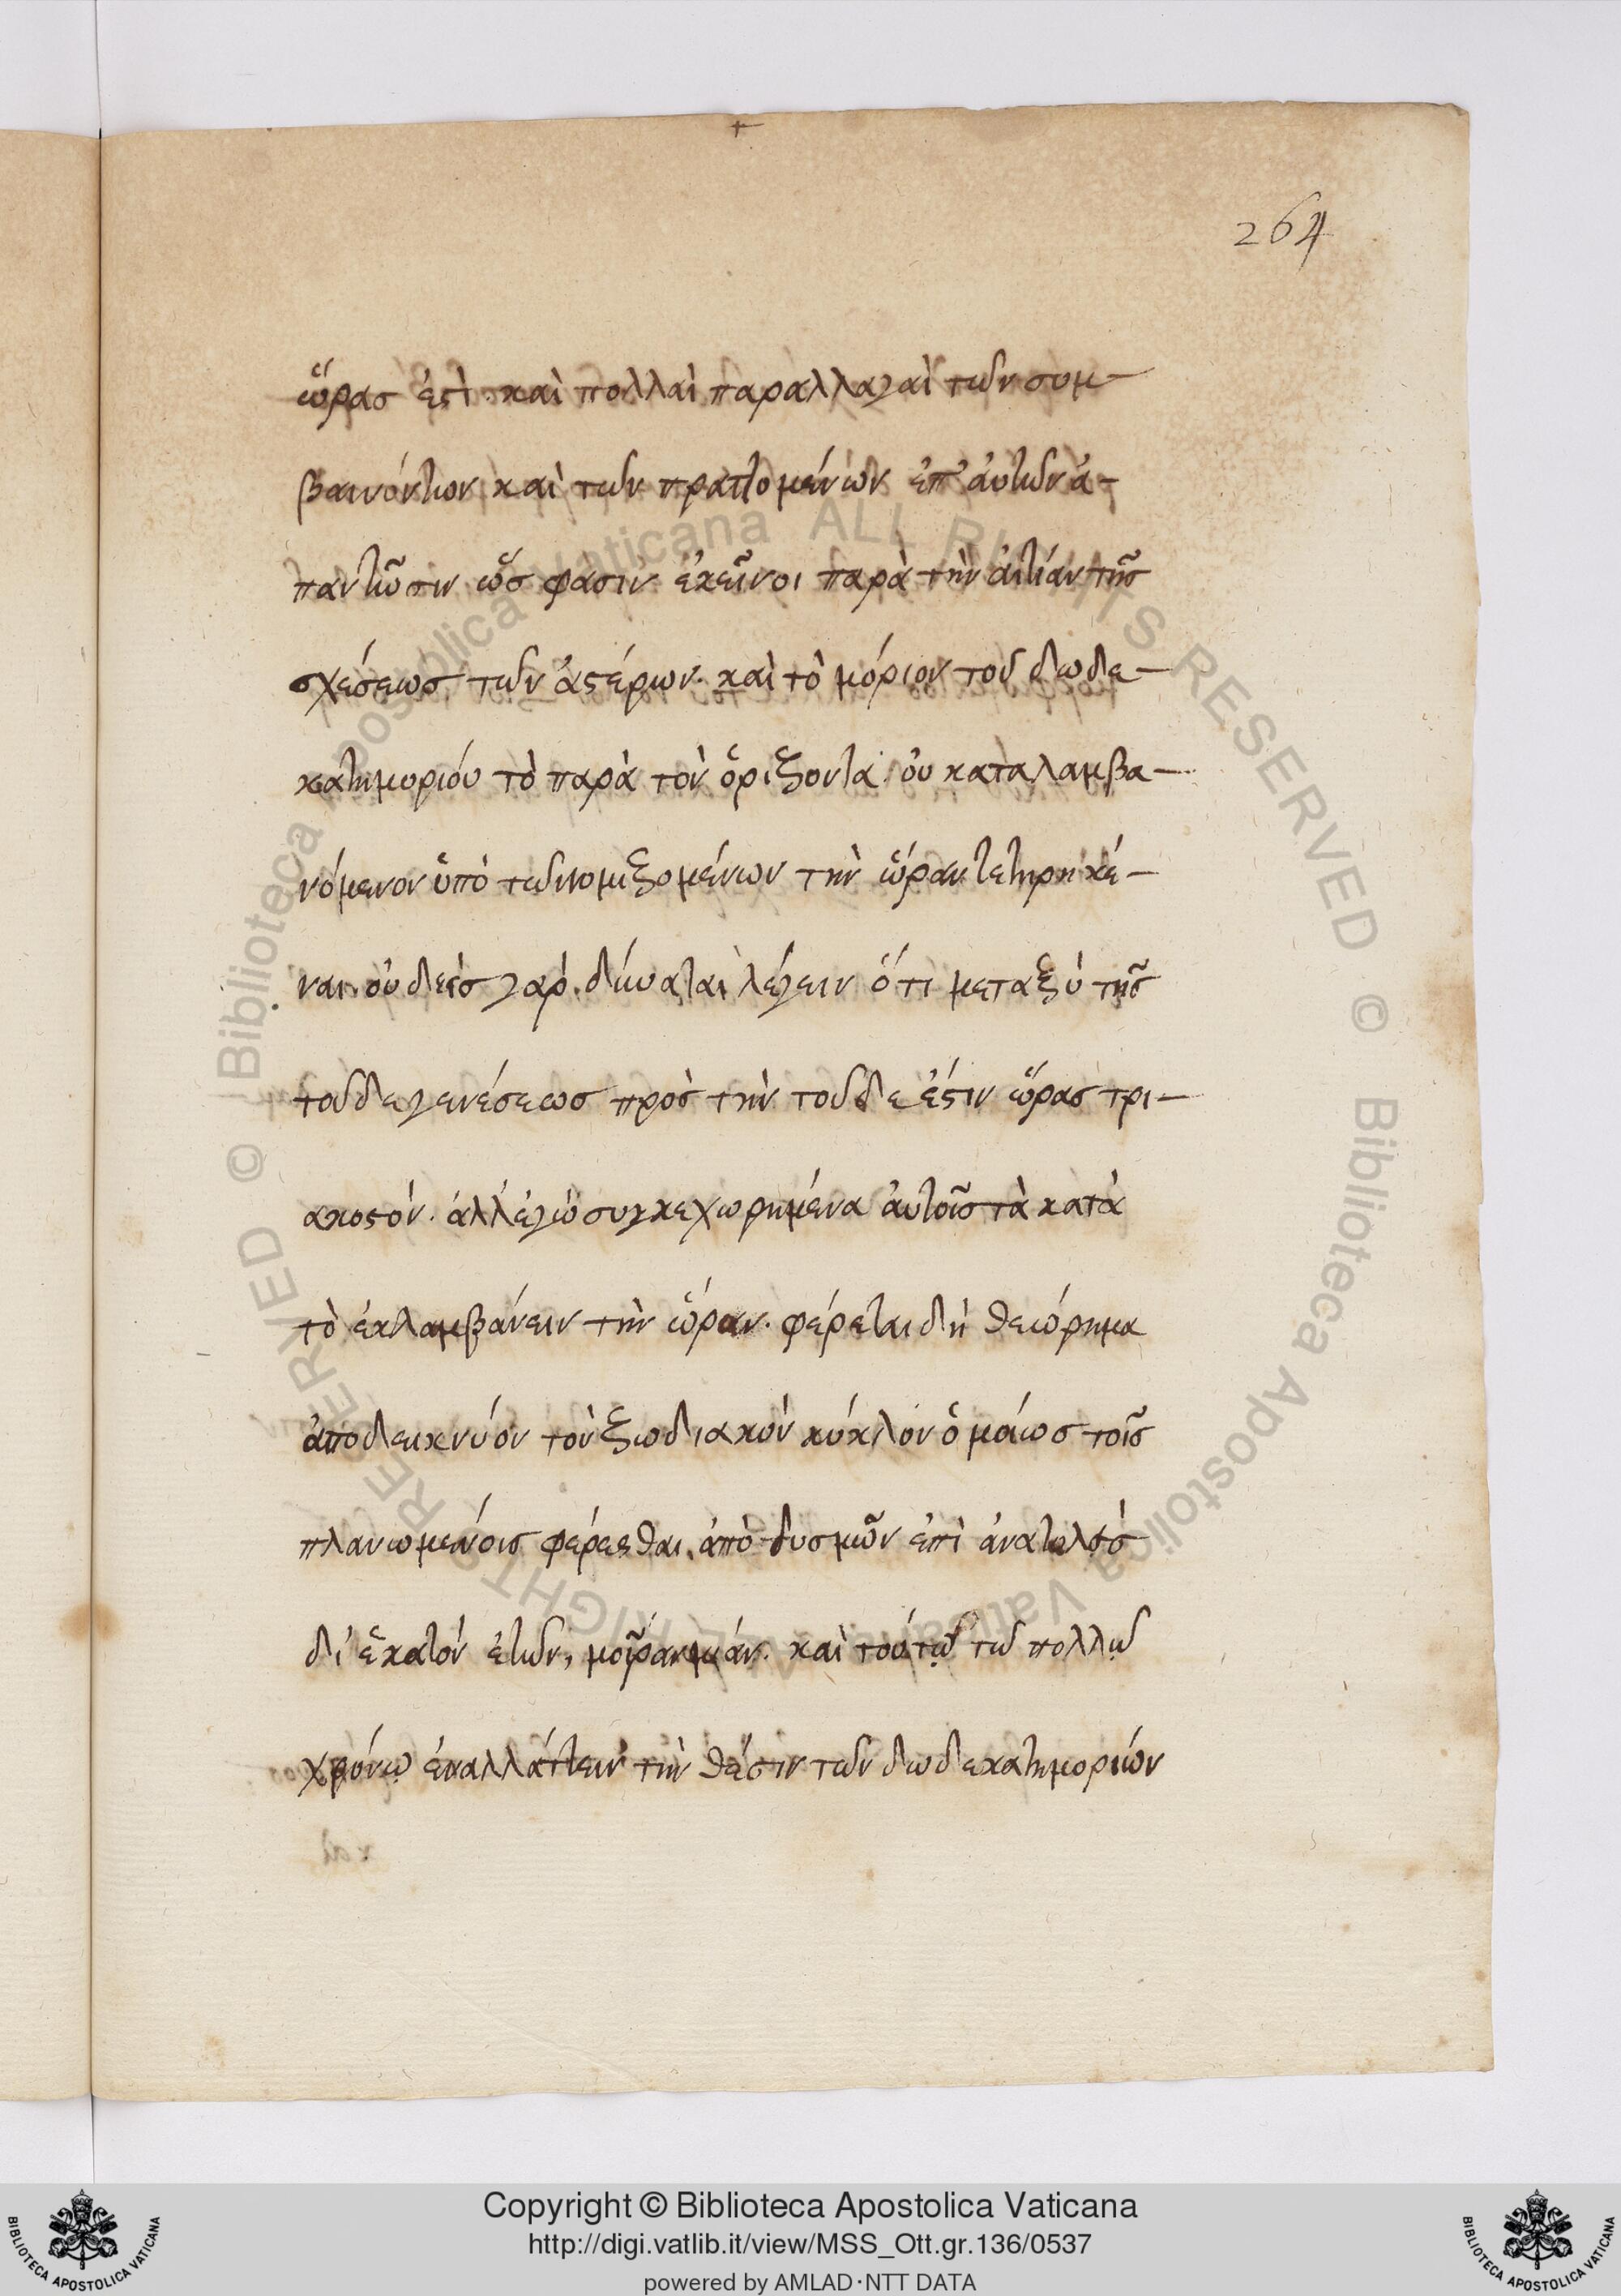 264
ὥρας ἐστὶ. καὶ πολλαὶ παραλλαγαὶ τῶν συμ-
βαινόντων καὶ τῶν πραττομένων ἐπ' ἀυτῶν ἀ-
παντῶσιν ὥς φασιν ἐκεῖνοι παρὰ τὴν ἀιτίαν τῆς
σχέσεως τῶν ἀστέρων. καὶ τὸ μόριον τοῦ δωδε-
κατημορίου τὸ παρὰ τὸν ὁρίζοντα. οὐ καταλαμβα-
νόμενον ὑπὸ τῶν νομιζομένων τὴν ὥραν τετηρηκέ-
ναι. οὐδεὶς γὰρ. δύναται λέγειν ὅτι μεταξὺ τῆς
τοῦδε γενέσεως πρὸς τὴν τοῦδε ἐστιν ὥρας τρι-
ακοστόν. ἀλλ' ἐγὼ συγκεχωρημένα ἀυτοῖς τὰ κατὰ
τὸ ἐκλαμβάνειν τὴν ὥραν. φέρεται δὴ θεώρημα
ἀποδεικνύον τὸν ζωδιακὸν κύκλον ὁμοίως τοῖς
πλανωμένοις φέρεσθαι. ἀπὸ δυσμῶν ἐπὶ ἀνατολὰς
δι' ἑκατὸν ἐτῶν, μοῖραν μίαν. καὶ τούτῳ τῷ πολλῷ
χρόνῳ ἐναλλάττειν τὴν θέσιν τῶν δωδεκατημορίων
Copyright © Biblioteca Apostolica Vaticana
http://digi.vatlib.it/view/MSS_Ott.gr.136/0537
powered by AMLAD·NTT DATA
BIBLIOTECA APOSTOLICA VATICANA
BIBLIOTECA APOSTOLICA VATICANA
© Biblioteca Apostolica Vaticana ALL RIGHTS RESERVED © Biblioteca Apostolica Vaticana ALL RIGHTS RESERVED